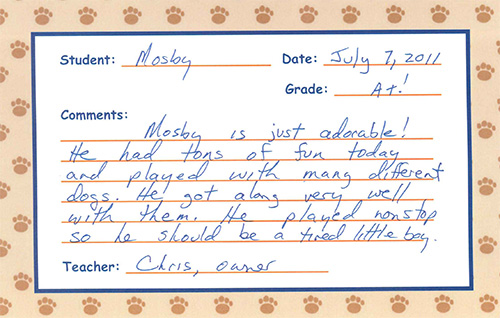 Student: Mosby Date: July 7, 2011
Grade: A+!
Comments:
Mosby is just adorable!
He had tons of fun today
and played with many different
dogs. He got along very well
with them. He played nonstop
so he should be a tired little boy.
Teacher: Chris, owner